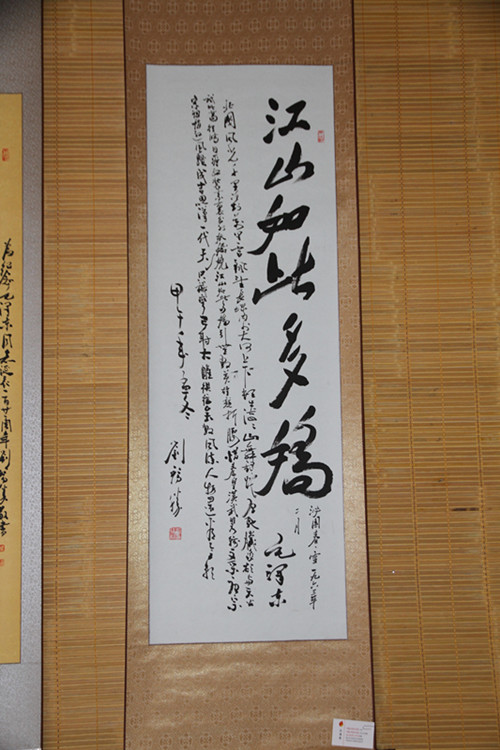 江山如此多嬌
沁园春雪 一九六三年
二月
毛泽东
北国风光千里冰封万里雪飘望长城内外大河上下顿失滔滔山舞银蛇原驰蜡象欲与天公
试比高须晴日看红装素裹分外妖娆江山如此多娇引无数英雄竞折腰惜秦皇汉武略输文采唐宗
宋祖稍逊风骚成吉思汗一代天骄只识弯弓射大雕俱往矣数风流人物还看今朝
甲午年孟冬
为纪念毛泽东同志诞辰一百二十周年